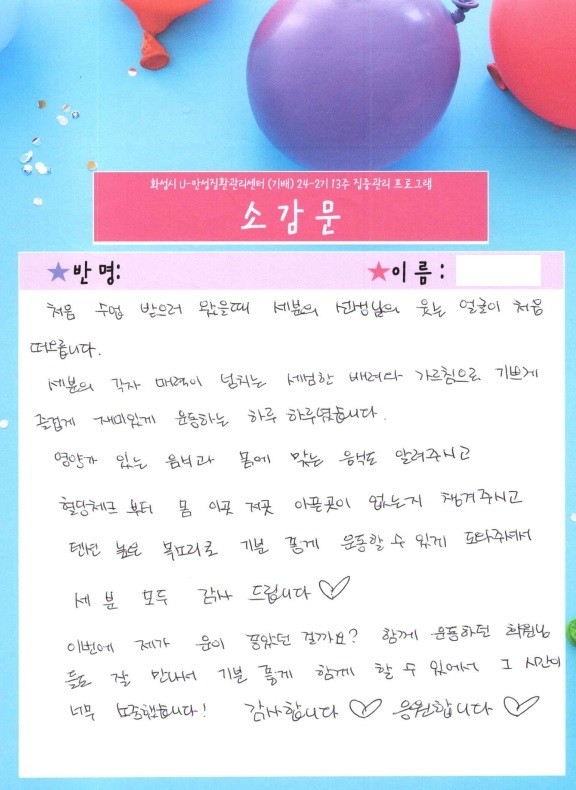 화성시 U-만성질환관리센터 (기배) 24-2기 13주 집중관리 프로그램
소감문
★반 명:
★이 름 :
처음 수업 받으러 왔을때 세분의 선생님의 웃는 얼굴이 처음
떠오릅니다.
세분의 각자 매력이 넘치는 세심한 배려와 가르침으로 기쁘게
즐겁게 재미있게 운동하는 하루 하루였습니다.
영양가 있는 음식과 몸에 맞는 음식도 알려주시고
혈당체크 부터 몸 이곳 저곳 아픈곳이 없는지 챙겨주시고
텐션 높은 목소리로 기분 좋게 운동할 수 있게 도와주셔서
세 분 모두 감사 드립니다 ♡
이번에 제가 운이 좋았던 걸까요? 함께 운동하던 회원님
들도 잘 만나서 기분 좋게 함께 할 수 있어서 그 시간이
너무 소중했습니다! 감사합니다 ♡ 응원합니다 ♡